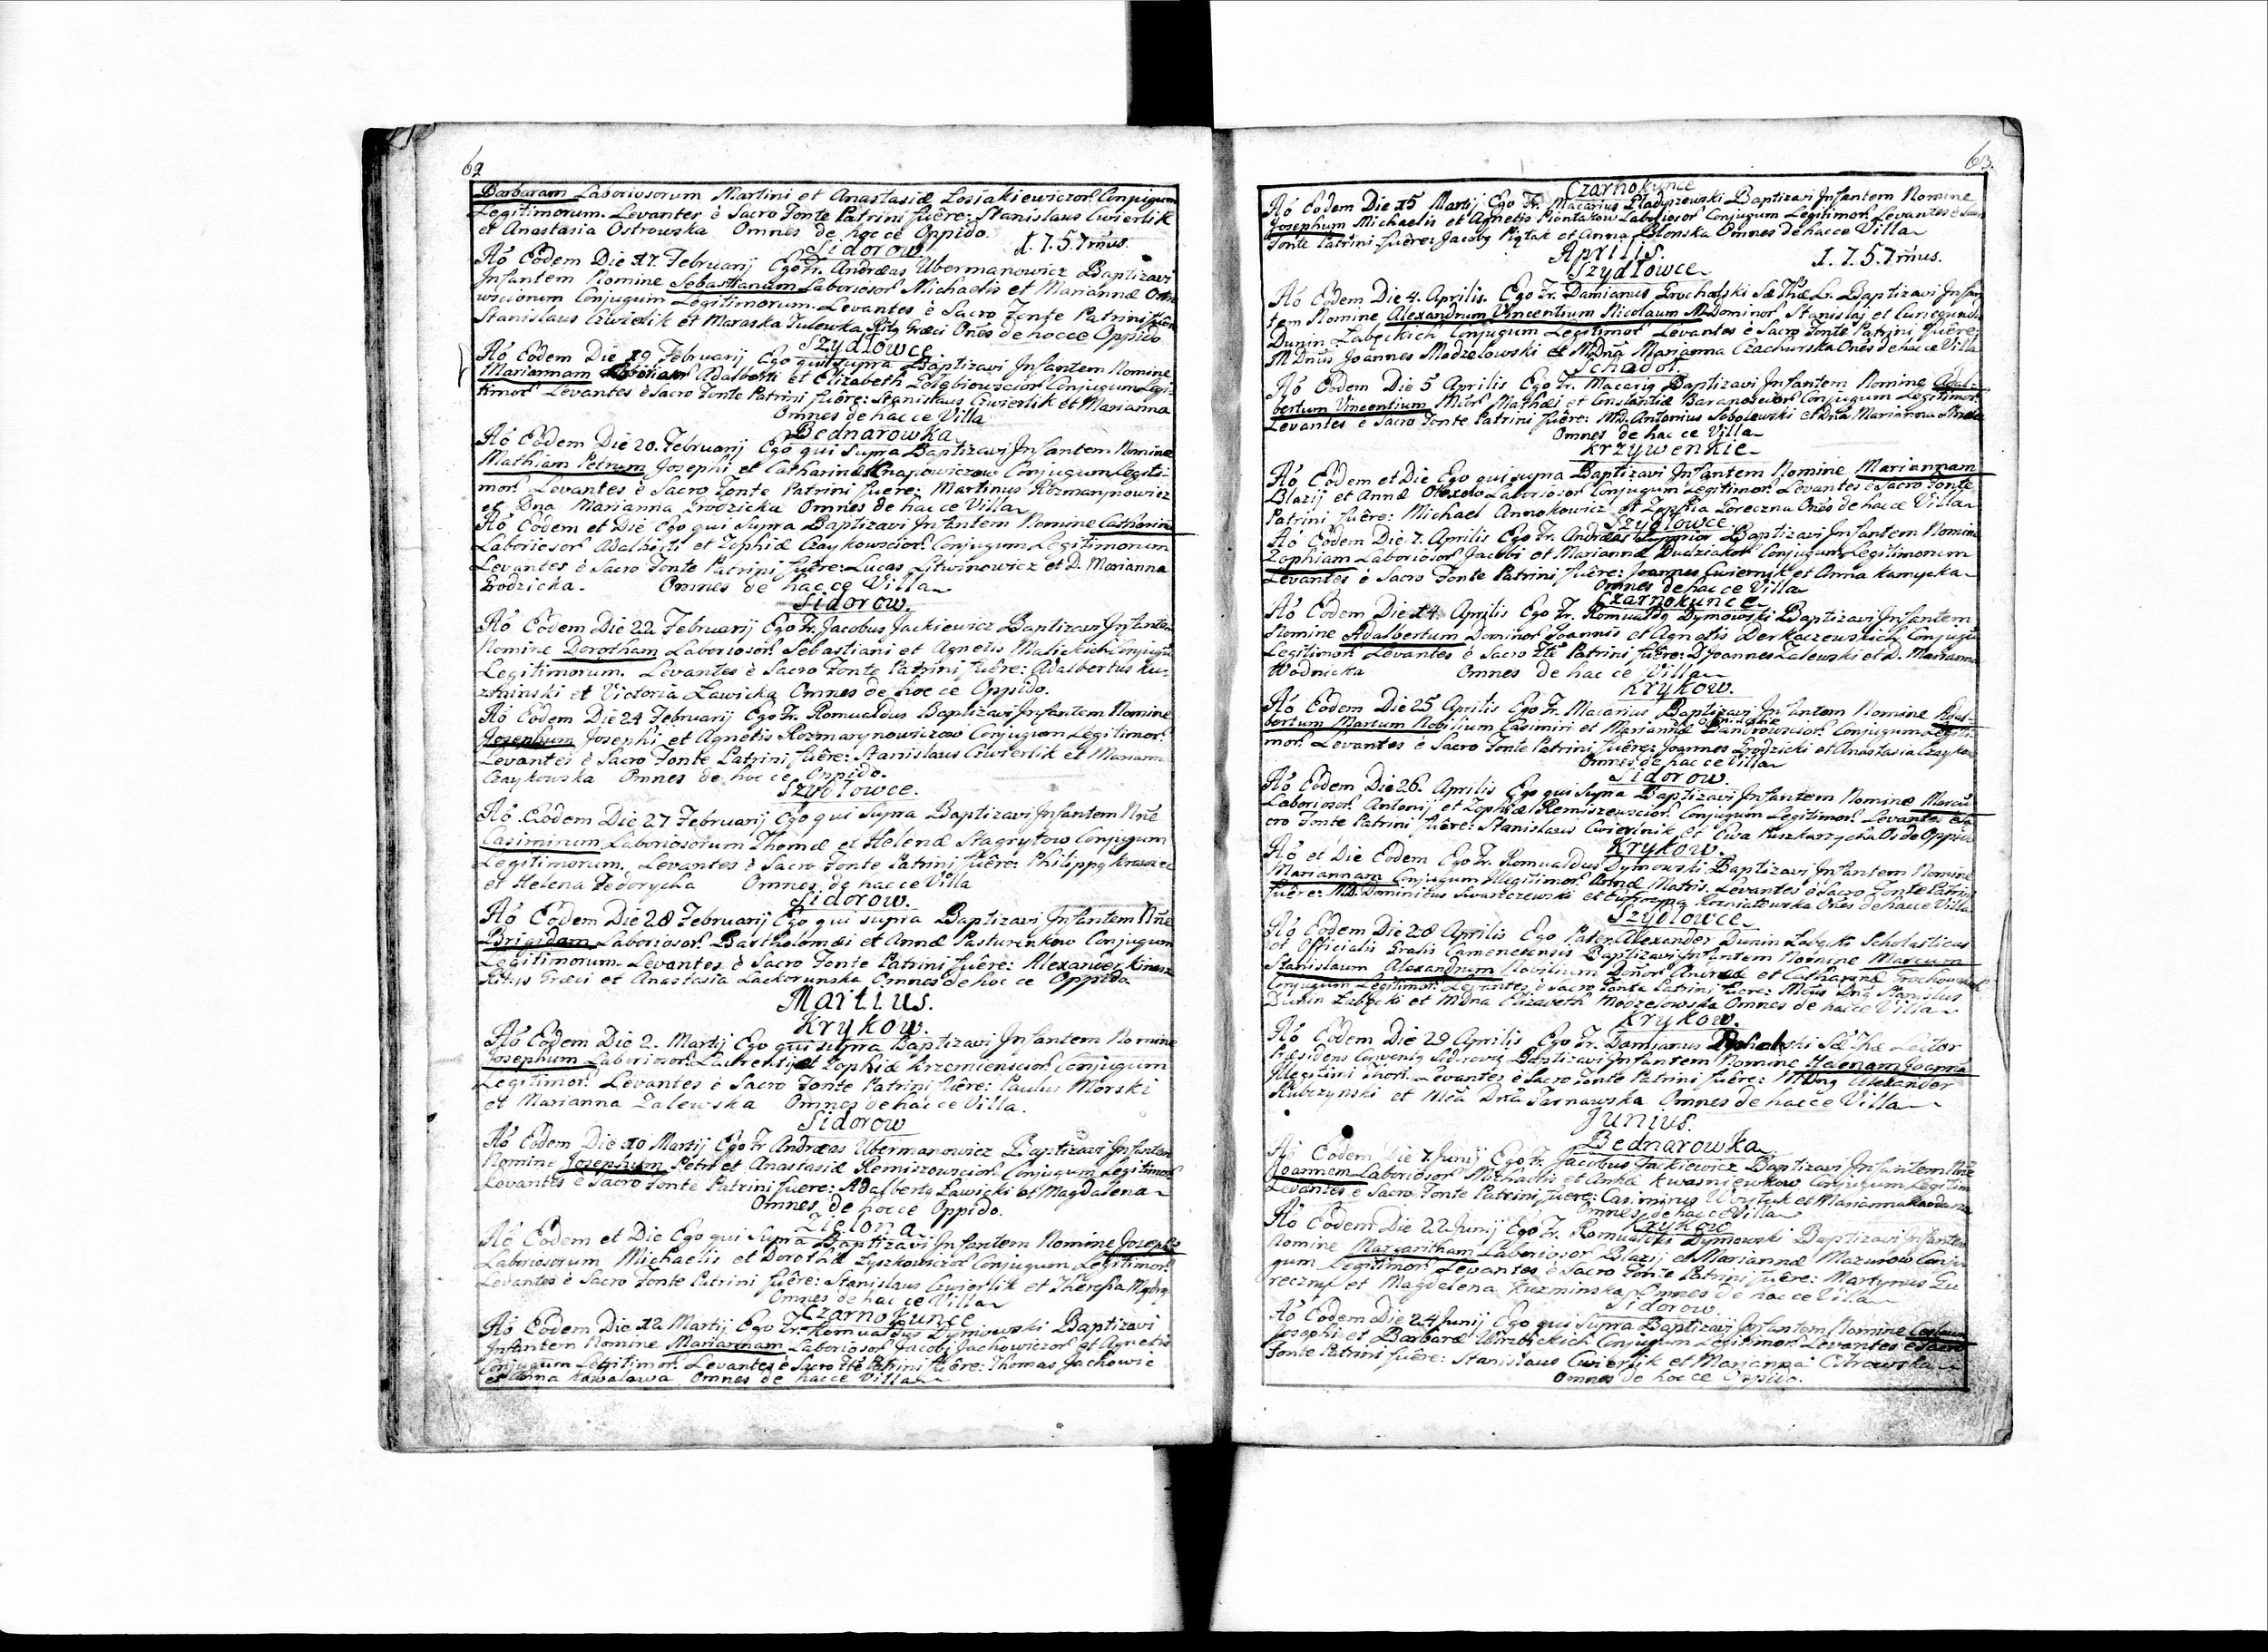 62
Barbaram Laboriosorum Martini et Anastasiæ Losiakiewiczor̃ Conjugum
Legitimorum. Levantes è Sacro Fonte Patrini fuêre: Stanislaus Cwierlik
et Anastasia Ostrowska Omnes de hoc ce Oppido.
Sidorow. 1.7.5.7mus.
Aõ Eodem Die 17. Februarij Ego Fr. Andræas Ubermanowicz Baptizavi
Infantem Nomine Sebastianum Laboriosor̃ Michaelis et Mariannæ
Conjugum Legitimorum. Levantes è Sacro Fonte Patrini fuêre
Stanislaus Cwierlik et Maraska Julewka Ritg Græci Onẽs de hocce Oppido
Szydlowce
Aõ Eodem Die 19 Februarij Ego qui supra Baptizavi Infantem Nomine
Mariannam Adalberti et Elizabeth Conjugum Legi-
timor̃ Levantes è Sacro Fonte Patrini fuêre: Stanislaus Cwierlik et Marianna
Omnes de hac ce Villa
Bednarowka
Aõ Eodem Die 20. Februarij Ego qui Supra Baptizavi Infantem Nomine
Mathiam Petrum Josephi et Catharinæ Knapowiczow Conjugum Legiti-
mor̃ Levantes è Sacro Fonte Patrini fuere: Martinus Rozmarynowicz
et Dna Marianna Grodzicka Omnes de hac ce Villa
Aõ Eodem et Die Ego qui Supra Baptizavi Infantem Nomine Catharin
Laboriosor̃ Adalberti et Zophiæ Czaykowscior̃ Conjugum Legitimorum
Levantes è Sacro Fonte Patrini fuêre: Lucas Litwinowicz et D. Marianna
Grodzicka. Omnes de hac ce Villa
Sidorow.
Aõ Eodem Die 22 Februarij Ego Fr. Jacobus Jackiewicz Baptizavi Infantem
Nomine Dorotham Laboriosor̃ Sebastiani et Agnetis Malickich Conjugũ
Legitimorum. Levantes è Sacro Fonte Patrini fuêre: Adalbertus Ku-
zminski et Victoria Lawicka Omnes de hoc ce Oppido.
Aõ Eodem Die 24 Februarij Ego Fr. Romualdus Baptizavi Infantem Nomine
Josephum Josephi et Agnetis Rozmarynowiczow Conjugum Legitimor̃
Levantes è Sacro Fonte Patrini fuêre: Stanislaus Cwierlik et Mariann
Czaykowska Omnes de hoc ce Oppido.
Szydlowce.
Aõ Eodem Die 27 Februarij Ego qui Supra Baptizavi Infantem Nñe
Casimirum Laboriosorum Thomæ et Helenæ Stagrytow Conjugum
Legitimorum. Levantes è Sacro Fonte Patrini fuêre: Philippg Krawiec
et Helena Fedorycha Omnes de hac ce Villa
Sidorow.
Aõ Eodem Die 28 Februarij Ego qui supra Baptizavi Infantem Nñe
Brigidam Laboriosor̃ Bartholomæi et Annæ Pasturenkow Conjugum
Legitimorum. Levantes è Sacro Fonte Patrini fuêre: Alexander
Ritus Græci et Anastasia Lackorunska Omnes de hoc ce Oppido
Martius.
Krykow.
Aõ Eodem Die 2. Martij Ego qui supra Baptizavi Infantem Nomine
Josephum Laboriosor̃ Laurentij et Zophiæ Krzemienscior̃ Conjugum
Legitimor̃. Levantes è Sacro Fonte Patrini fuêre: Paulus Morski
et Marianna Zalewska Omnes de hac ce Villa.
Sidorow
Aõ Eodem Die 10 Martij Ego Fr. Andræas Ubermanowicz Baptizavi Infantem
Nomine Josephum Petri et Anastasiæ Remiszowscior̃ Conjugum Legitimor̃
Levantes è Sacro Fonte Patrini fuere: Adalbertg Lawicki et Magdalena
Omnes de hocce Oppido.
Zielona
Aõ Eodem et Die Ego qui Supra Baptizavi Infantem Nomine Joseph
Laboriosorum Michaelis et Dorothæ Conjugum Legitimor̃
Levantes è Sacro Fonte Patrini fuêre: Stanislaus Cwierlik et Theresia
Omnes de hac ce Villa
Czarnokunce
Aõ Eodem Die 12 Martij Ego Fr. Romualdus Dymowski Baptizavi
Infantem Nomine Mariannam Laboriosor̃ Jacobi Jachowiczor̃ et Agnetis
Conjugum Legitimor̃ Levantes è Sacro Fte Patrini fuêre: Thomas Jachowic
et Anna Kowalowa Omnes de hacce Villa
63.
Czarnokunce
Aõ Eodem Die 15 Martij Ego Fr. Macarius Gladyszewski Baptizavi Infantem Nomine
Josephum Michaelis et Agnetis Piontakow Laboriosor̃ Conjugum Legitimor̃ Levantes è Sacro
Fonte Patrini fuêre: Jacobg Piątak et Anna Blonska Omnes de hacce Villa
Aprilis. 1.7.5.7mus.
Szydlowce
Aõ Eodem Die 4. Aprilis. Ego Fr. Damianus Grochalski Sæ Thæ L. Baptizavi Infan
tem Nomine Alexandrum Vincentium Nicolaum M. Dominor̃ Stanislaj et Cunegundæ
Dunin Łabęckich Conjugum Legitimor̃ Levantes è Sacro Fonte Patrini fuêre:
M Dnus Joannes Modzelowski et M. Dña Marianna Czachurska Onẽs de hac ce Villa
Schadol.
Aõ Eodem Die 5 Aprilis Ego Fr. Macarig Baptizavi Infantem Nomine Adal-
bertum Vincentium Mathæi et Constantiæ Conjugum Legitimor̃
Levantes è Sacro Fonte Patrini fuêre: MD. Antonius Sobolewski et Dña Marianna
Omnes de hac ce Villa
Krzywenkie
Aõ Eodem et Die Ego qui supra Baptizavi Infantem Nomine Mariannam
Blazij et Annæ Laboriosor̃ Conjugum Legitimor̃. Levantes è Sacro Fonte
Patrini fuêre: Michael Annokowicz et Zophia Goreczna Onẽs de hac ce Villa
Szydlowce.
Aõ Eodem Die 7. Aprilis Ego Fr. Andræas Baptizavi Infantem Nomine
Zophiam Laboriosor̃ Jacobi et Mariannæ Budziakow Conjugum Legitimorum
Levantes è Sacro Fonte Patrini fuêre: Joannes Cwiernik et Anna Kamycka
Omnes de hac ce Villa
Czarnokunce
Aõ Eodem Die 14 Aprilis Ego Fr. Romualdg Dymowski Baptizavi Infantem
Nomine Adalbertum Dominor̃ Joannis et Agnetis Derkaczewskich Conjugũ
Legitimor̃ Levantes è Sacro Fte Patrini fuêre: D Joannes Zalewski et D. Marianna
Wodnicka Omnes de hac ce Villa
Krykow.
Aõ Eodem Die 25 Aprilis Ego Fr. Macarius Baptizavi Infantem Nomine Adal-
bertum Marcum Nobilium Casimiri et Mariannæ Conjugum Legiti-
mor̃ Levantes è Sacro Fonte Patrini fuêre: Joannes Grodzicki et Anastasia
Omnes de hac ce Villa
Sidorow.
Aõ Eodem Die 26. Aprilis Ego qui Supra Baptizavi Infantem Nomine Marcũ
Laboriosor̃ Antonij et Zophiæ Remiszewscior̃ Conjugum Legitimor̃ Levantes è Sa
cro Fonte Patrini fuêre: Stanislaus Cwierlnik et Ewa Puszkarzycha Os de Oppido
Krykow.
Aõ et Die Eodem Ego Fr. Romualdus Dymowski Baptizavi Infantem Nomine
Mariannam Conjugum Illegitimor̃ Annæ Matris. Levantes è Sacro Fonte Patrini
fuêre: MD. Dominicus Swarczewski et Euphrozyna Onẽs de hacce Villa
Szydlowce
Aõ Eodem Die 28 Aprilis Ego Pater Alexander Dunin Łabęcki Scholasticus
et Officialis Gralis Camenecensis Baptizavi Infantem Nomine Marcum
Stanislaum Alexandrum Nobilium Dñor̃ Andreæ et Catharinæ
Conjugum Legitimor̃ Levantes è Sacro Fonte Patrini fuere: Dng Stanislaus
Dunin Łabęcki et MDna Elizabeth Modzelowska Omnes de hacce Villa
Krykow.
Aõ Eodem Die 29 Aprilis Ego Fr. Damianus Sæ Thæ Lector
Præsidens Conventg Sidroviæ Baptizavi Infantem Nomine Helenam Joannã
Illegitimi Thori. Levantes è Sacro Fonte Patrini fuêre: M Dng Alexander
Rubczynski et Dña Tarnawska Omnes de hacce Villa
Junius.
Bednarowka
Aõ Eodem Die 7. Junij Ego Fr. Jacobus Jackiewicz Baptizavi Infantem Nñe
Joannem Laboriosor̃ Michaelis et Annæ Kwasniewkow Conjugum Legitim
Levantes è Sacro Fonte Patrini fuere: Casimirus Woytuk et Marianna
Omnes de hac ce Villa
Krykow
Aõ Eodem Die 22 Junij Ego Fr. Romualdus Dymowski Baptizavi Infantem
Nomine Margaritham Laboriosor̃ Blazij et Mariannæ Mazurow Conju
gum Legitimor̃ Levantes è Sacro Fonte Patrini fuêre: Martynus Gu
reczny et Magdelena Kuzminska Omnes de hac ce Villa
Sidorow.
Aõ Eodem Die 24 Junij Ego qui Supra Baptizavi Infantem Nomine
Josephi et Barbaræ Wirzbickich Conjugum Legitimor̃ Levantes è Sacro
Fonte Patrini fuêre: Stanislaus Cwierlik et Marianna Ostrowska
Omnes de hoc ce Oppido.